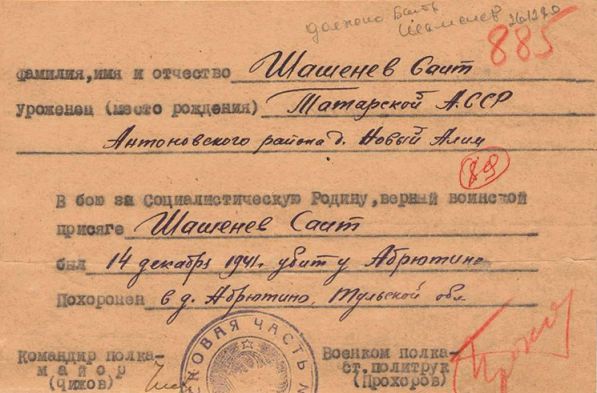 должно быть
885
Фамилия,имя и отчество Шашенев Саит
уроженец (место рождения) Татарской АССР
Антоновского района д. Новый Алим
89
В бою за Социалистическую Родину,верный воинской
присяге Шашенев Саит
был 14 декабря 1941г. убит у Абрютино
Похоронен в д. Абрютино, Тульской обл
КОВАЯ ЧАСТЬ
Командир полка- Военком полка-
майор ст.политрук
(Чижов) (Прохоров)